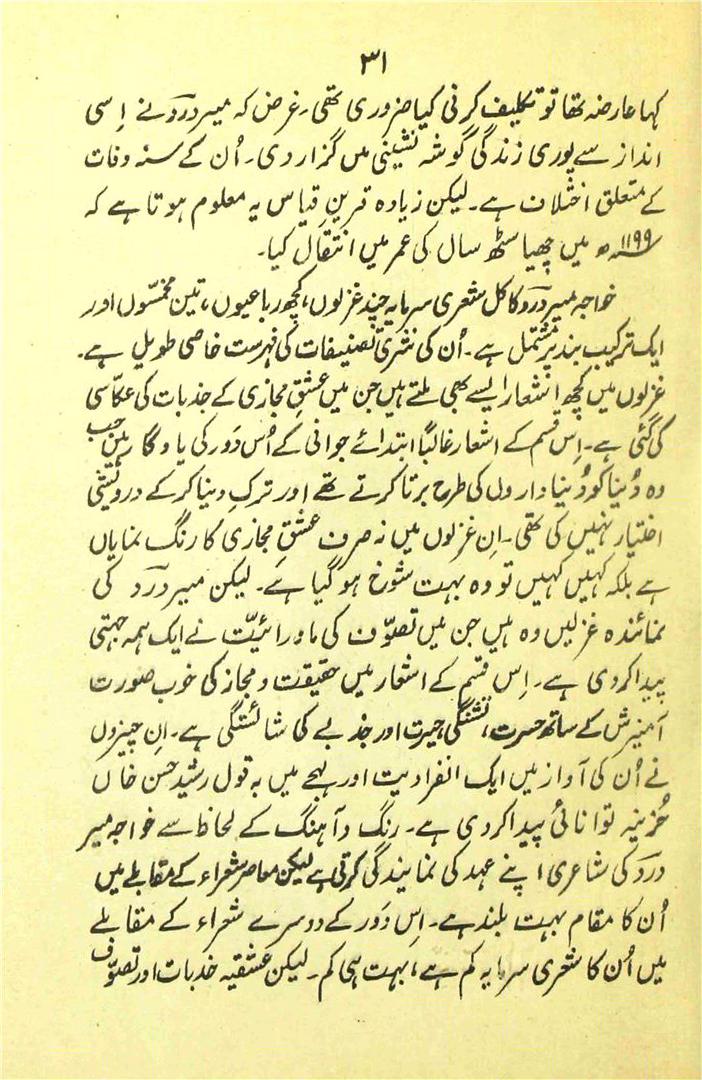 ۳۱
کہا عارضہ تھا تو تکلیف کرنی کیا ضروری تھی۔ غرض کہ میر دردؔ نے اِسی
انداز سے پوری زندگی گوشہ نشینی میں گزار دی۔ اُن کے سنہ وفات
کے متعلق اختلاف ہے۔ لیکن زیادہ قرینِ قیاس یہ معلوم ہوتا ہے کہ
۱۱۹۹ھ میں چھیاسٹھ سال کی عمر میں انتقال کیا۔
خواجہ میر دردؔ کا کل شعری سرمایہ چند غزلوں، کچھ رباعیوں، تین مخمّسوں اور
ایک ترکیب بند پر مشتمل ہے۔ اُن کی نثری تصنیفات کی فہرست خاصی طویل ہے۔
غزلوں میں کچھ اشعار ایسے بھی ملتے ہیں جن میں عشقِ مجازی کے جذبات کی عکاسی
کی گئی ہے۔ اِس قسم کے اشعار غالباً ابتدائے جوانی کے اُس دَور کی یادگار ہیں جب
وہ دُنیا کو دُنیا داروں کی طرح برتا کرتے تھے اور ترکِ دنیا کر کے درویشی
اختیار نہیں کی تھی۔ اِن غزلوں میں نہ صرف عشقِ مجازی کا رنگ نمایاں
ہے بلکہ کہیں کہیں تو وہ بہت شوخ ہو گیا ہے۔ لیکن میر دردؔ کی
نمائندہ غزلیں وہ ہیں جن میں تصوّف کی ماورائیّت نے ایک ہمہ جہتی
پیدا کر دی ہے۔ اِس قسم کے اشعار میں حقیقت و مجاز کی خوب صورت
آمیزش کے ساتھ حسرت، تشنگی، حیرت اور جذبے کی شائستگی ہے۔ اِن چیزوں
نے اُن کی آواز میں ایک انفرادیت اور لہجے میں بہ قول رشید حسن خاں
حُزنیہ توانائی پیدا کر دی ہے۔ رنگ و آہنگ کے لحاظ سے خواجہ میر
دردؔ کی شاعری اپنے عہد کی نمایندگی کرتی ہے لیکن معاصر شعراء کے مقابلے میں
اُن کا مقام بہت بلند ہے۔ اِس دَور کے دوسرے شعراء کے مقابلے
میں اُن کا شعری سرمایہ کم ہے، بہت ہی کم۔ لیکن عشقیہ جذبات اور تصوّف